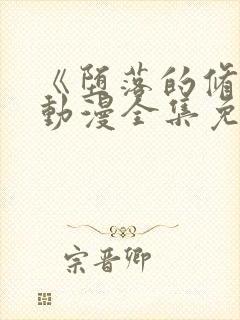 《堕落的脩
动漫全集免
宗晋卿